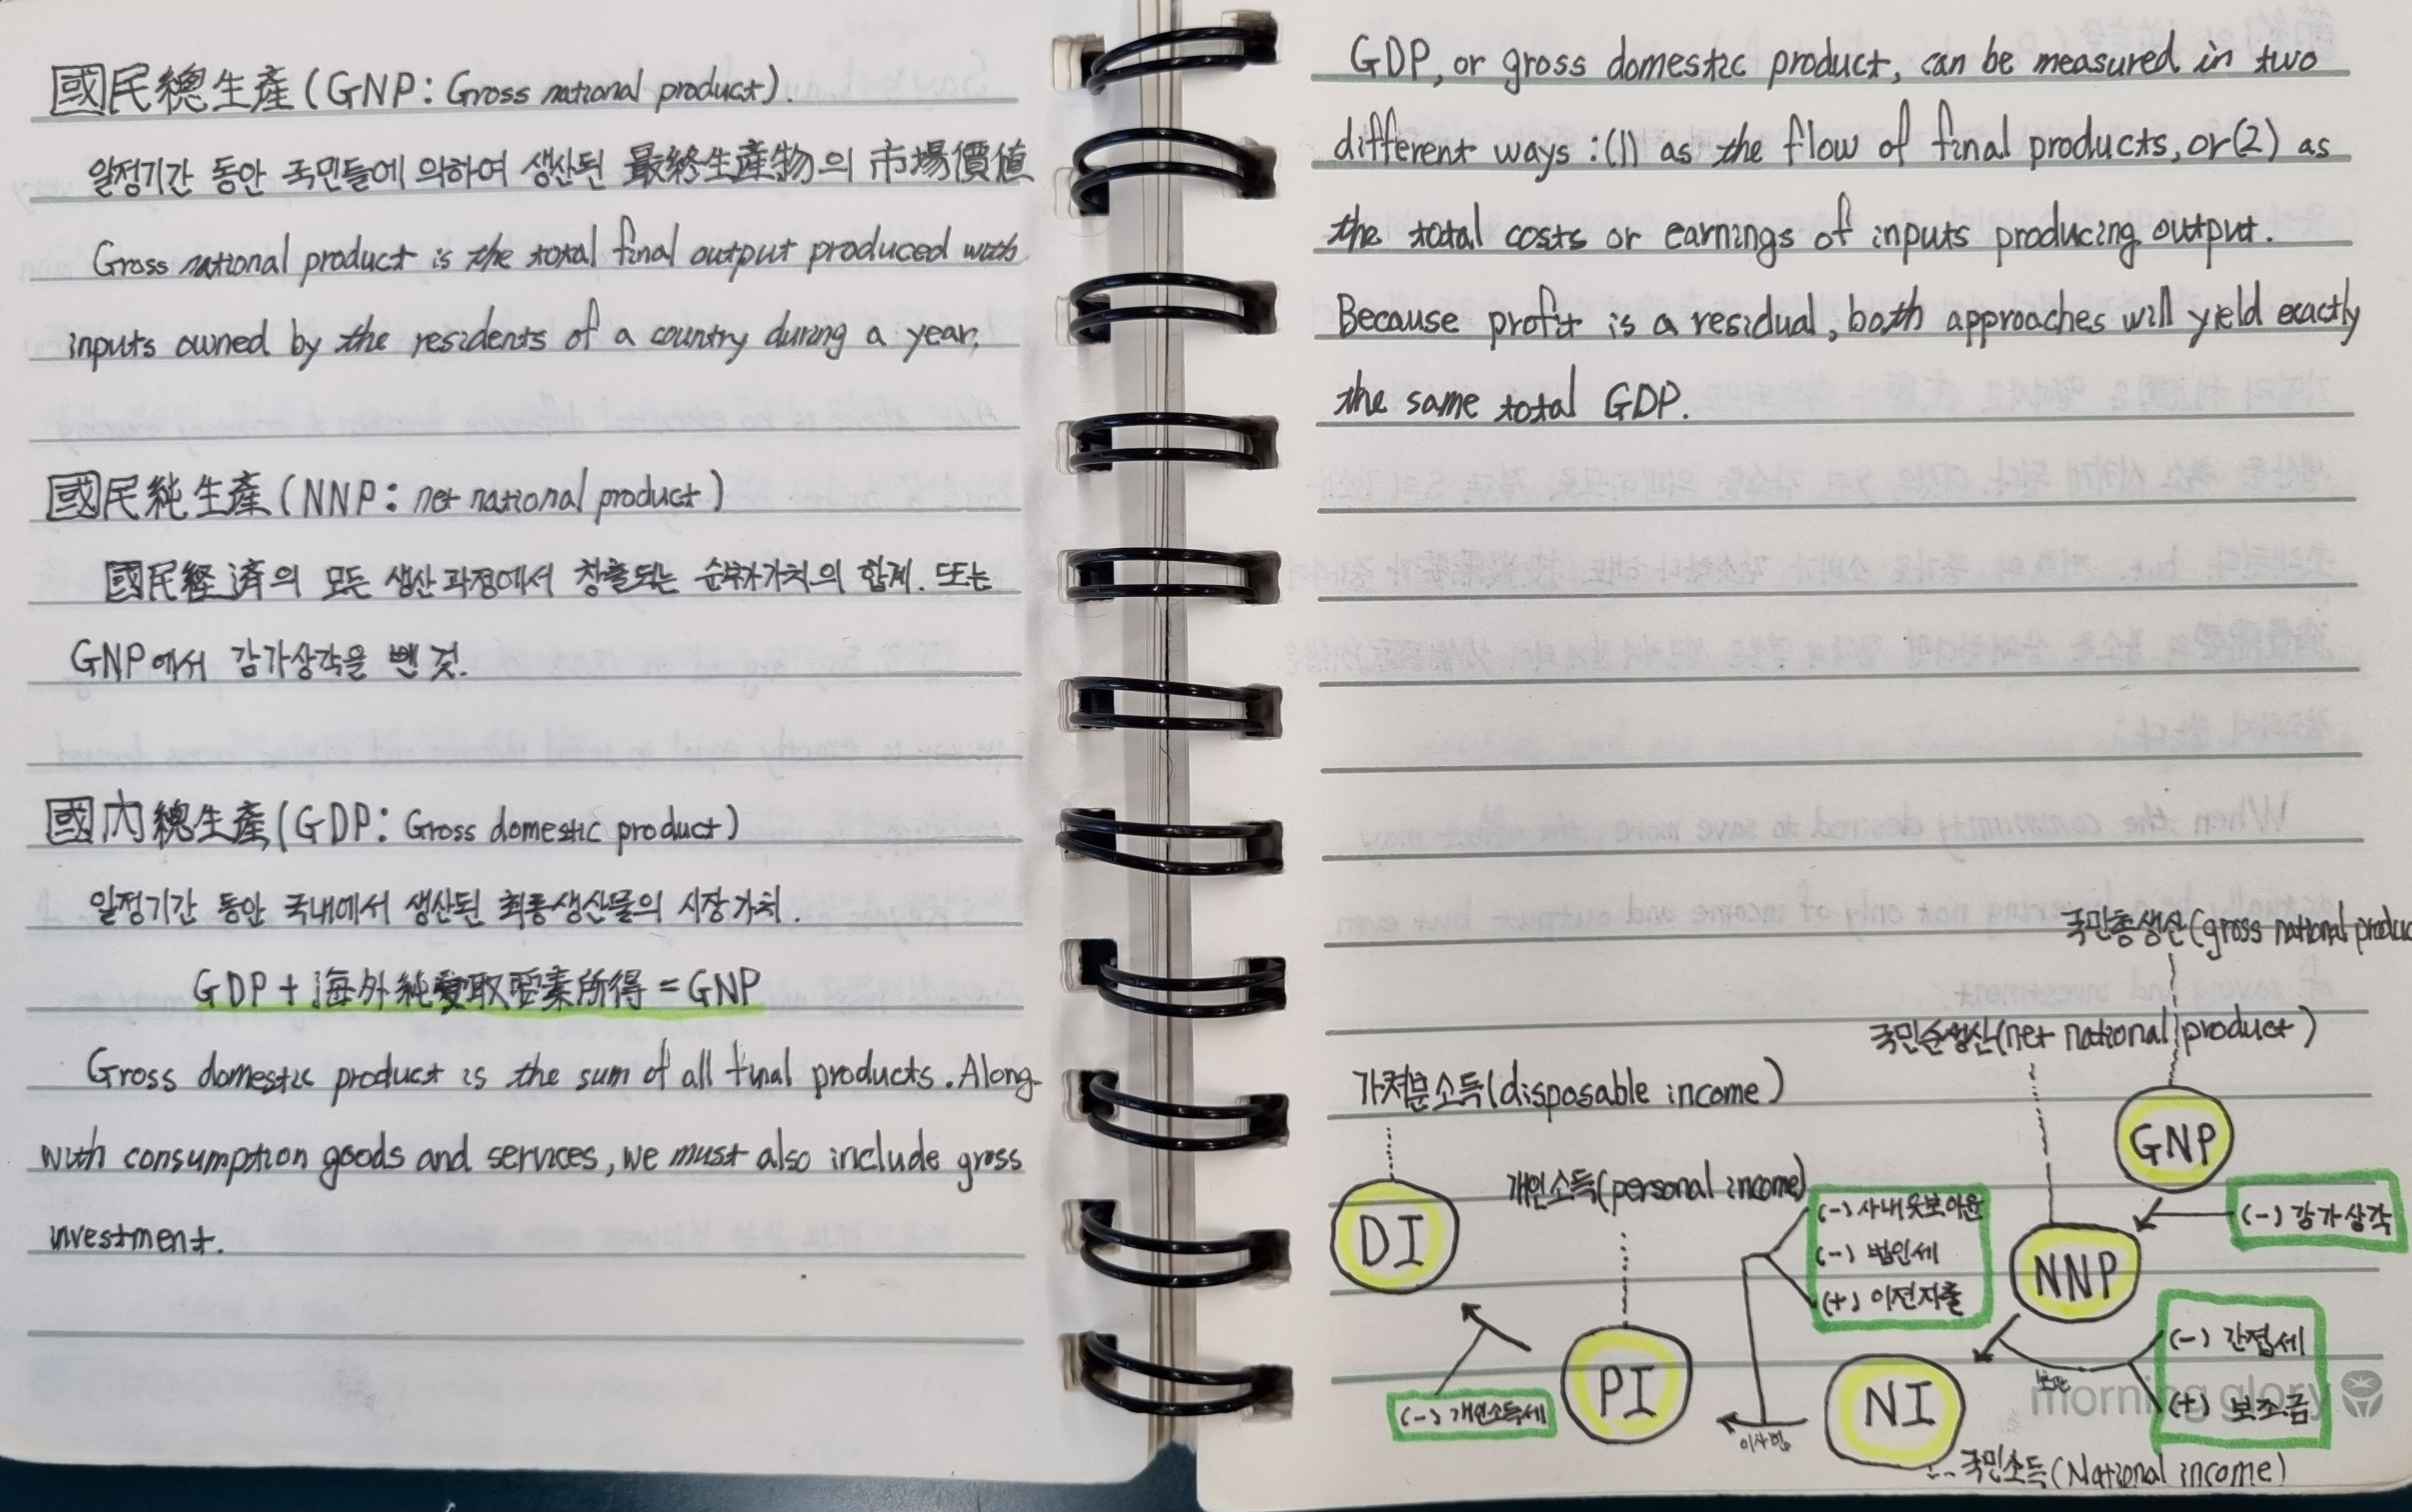 國民總生産(GNP: Gross national product).
일정기간 동안 국민들에 의하여 생산된 最終生産物의 市場價値
Gross national product is the total final output produced with
inputs owned by the residents of a country during a year.
國民純生産(NNP: net national product)
國民経済의 모든 생산과정에서 창출되는 순부가가치의 합계. 또는
GNP에서 감가상각을 뺀 것.
國內總生産(GDP: Gross domestic product)
일정기간 동안 국내에서 생산된 최종생산물의 시장가치.
GDP+海外純受取要素所得=GNP
Gross domestic product is the sum of all final products. Along-
with consumption goods and services, we must also include gross
investment.
GDP, or gross domestic product, can be measured in two
different ways :(1) as the flow of final products, or(2) as
the total costs or earnings of inputs producing output.
Because profit is a residual, both approaches will yield exactly
the same total GDP.
국민총생산(gross national produc
국민순생산(net national product)
가처분소득(disposable income)
GNP
개인소득(personal income)
(-) 사내유보이윤
(-) 감가상각
DI
(-) 법인세
NNP
(+) 이전지출
(-) 간접세
PI
NI
(-) 개인소득세
(+) 보조금
이사법
morning glory
국민소득(National income)